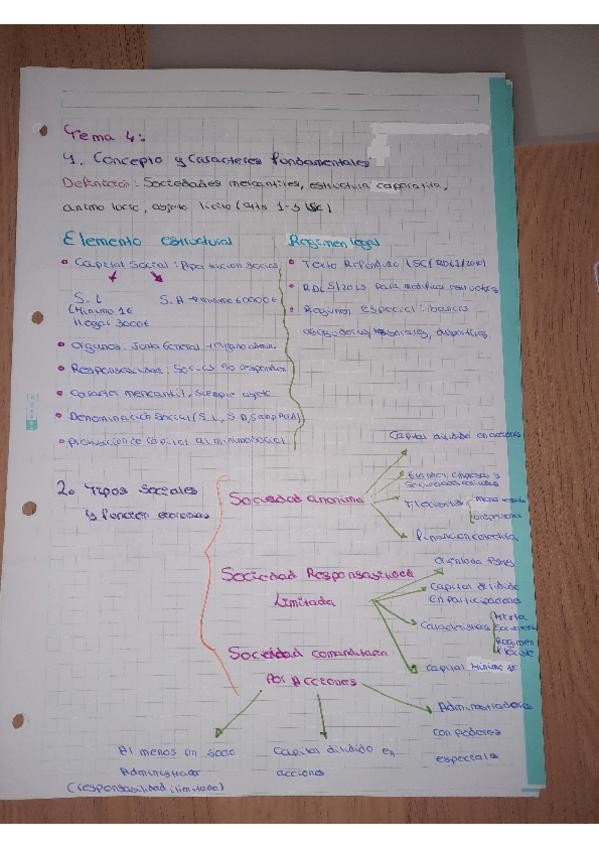 Tema 4:
1. Concepto y Caracteres fundamentales
Definición: Sociedades mercantiles, estructura corporativa,
animo lucro, objeto licito (arts 1-3 LSC)
Elemento estructural
• Capital Social: Aportacion socios
S.L
(Minimo 1€
Ilegal 3000€
S.A → minimo 60000€
• Organos: Junta General + Organo admin.
• Responsabilidad: Socios no responden
• Caracter mercantil, siempre sujeto
• Denominación Social (S.L, S.A,
• capital al minimo social
Regimen legal
• Texto Refundido LSC (RDL1/2010)
• RDL 5/2023 para modifica
• Regimen especial: bancos
deportivas
2. Tipos Sociales
y función economica
Sociedad anonima
Capital dividido en acciones
Grandes empresas y
Sociedades cotizadas
Financiacion colectiva
Sociedad Responsabilidad
Limitada
Orientada Pymes
Capital dividido
en participaciones
Caracteristicas
Mixta
Regimen
flexible
Capital Minimo 1€
Sociedad comanditaria
por Acciones
Al menos un socio
Administrador
(responsabilidad ilimitada)
Capital dividido en
acciones
Administradores
con poderes
especiales